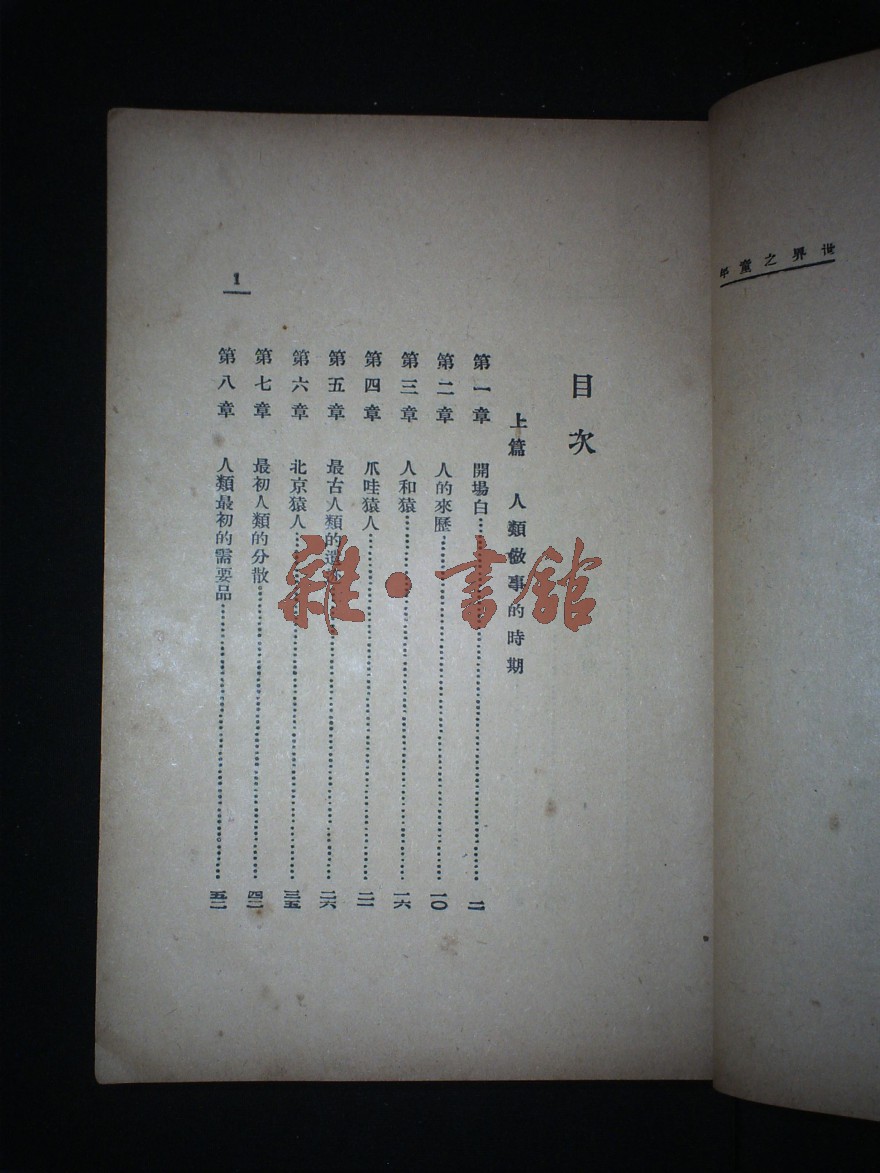 世界之童年
目次
上篇 人類做事的時期
第一章 開場白……二
第二章 人的來歷……一〇
第三章 人和猿……一六
第四章 爪哇猿人……二一
第五章 最古人類的遺……二六
第六章 北京猿人……三五
第七章 最初人類的分散……四二
第八章 人類最初的需要品……五二
1
雜·書館